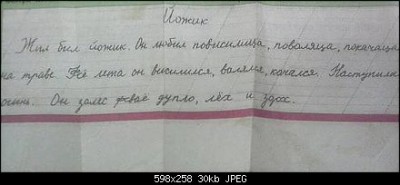 Йожик
Жил был йожик. Он любил повисилица, поваляца, покачаца
на траве. Все лета он висилился, валялся, качался. Наступила
осень. Он залес в своё дупло, лёх и здох.
598x258 30kb JPEG